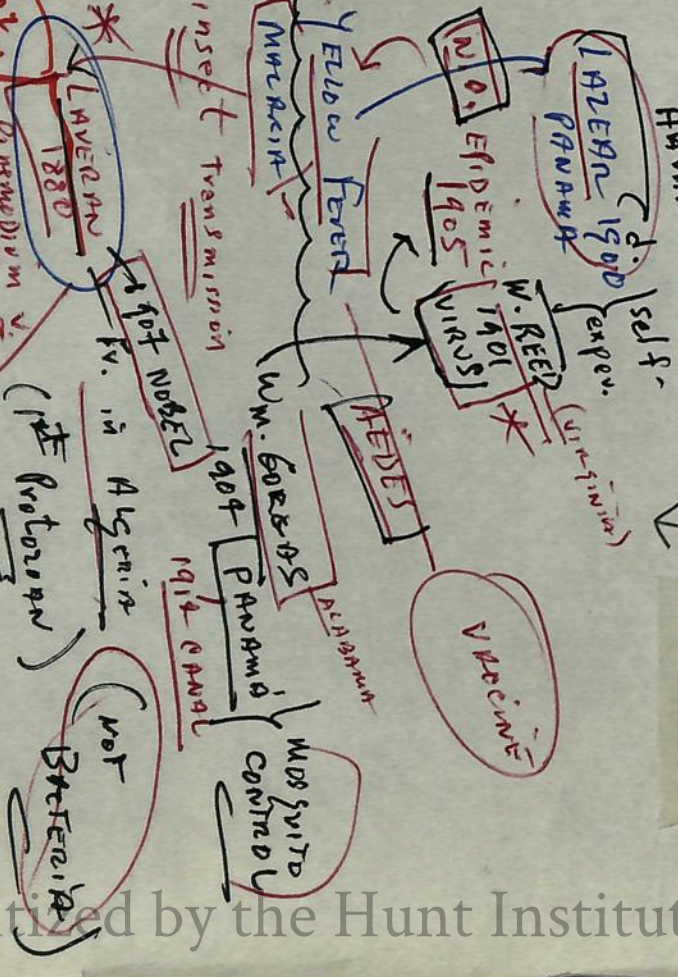 LAZEAR (d. 1900
PANAMA
self-
exper.
W. REED (VIRGINIA)
1901
VIRUS
N.O. EPIDEMIC
1905
YELLOW FEVER
MALARIA
AËDES
VACCINE
insect transmission
Wm. GORGAS
ALABAMA
1904 PANAMA
1914 CANAL
MOSQUITO
CONTROL
LAVERAN
1880
1907 NOBEL
Fr. in Algeria
(1st Protozoan)
(NOT
BACTERIA)
tized by the Hunt Institut